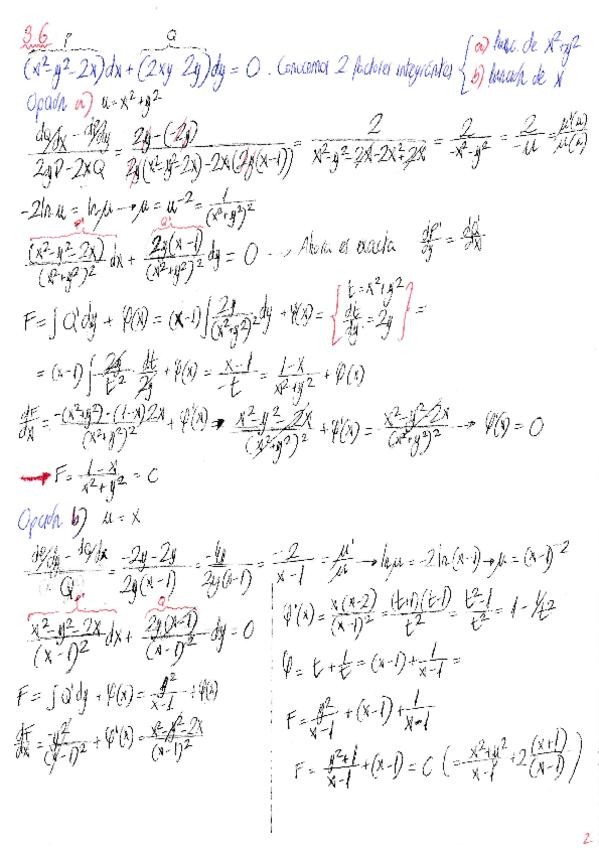 3.6
P Q
(x²-y²-2x)dx + (2xy-2y)dy = 0. Conocemos 2 factores integrantes { a) func. de x²+y²
b) función de x
Opción a) u = x²+y²
(dQ/dx - dP/dy)/(2yP-2xQ) = (2y-(-2y))/(2y(x²-y²-2x)-2x(2y(x-1))) = 2/(x²-y²-2x-2x²+2x) = 2/(-x²-y²) = 2/-u = μ'(u)/μ(u)
-2ln u = ln μ → μ = u⁻² = 1/(x²+y²)²
P' Q'
(x²-y²-2x)/(x²+y²)² dx + 2y(x-1)/(x²+y²)² dy = 0 → Ahora es exacta dP'/dy = dQ'/dx
F = ∫Q'dy + φ(x) = (x-1)∫2y/(x²+y²)² dy + φ(x) = { t = x²+y²
dt/dy = 2y } =
= (x-1)∫2y/t² dt/2y + φ(x) = (x-1)/-t = (1-x)/(x²+y²) + φ(x)
dF/dx = (-(x²+y²)-(1-x)2x)/(x²+y²)² + φ'(x) → (x²-y²-2x)/(x²+y²)² + φ'(x) = (x²-y²-2x)/(x²+y²)² → φ'(x) = 0
→ F = (1-x)/(x²+y²) = C
Opción b) u = x
(dP/dy - dQ/dx)/Q = (-2y-2y)/(2y(x-1)) = -4y/(2y(x-1)) = -2/(x-1) = μ'/μ → ln μ = -2ln(x-1) → μ = (x-1)⁻²
P' Q'
(x²-y²-2x)/(x-1)² dx + 2y(x-1)/(x-1)² dy = 0
F = ∫Q'dy + φ(x) = y²/(x-1) + φ(x)
dF/dx = -y²/(x-1)² + φ'(x) = (x²-y²-2x)/(x-1)²
φ'(x) = x(x-2)/(x-1)² = (t+1)(t-1)/t² = (t²-1)/t² = 1-1/t²
φ = t + 1/t = (x-1) + 1/(x-1) =
F = y²/(x-1) + (x-1) + 1/(x-1)
F = (y²+1)/(x-1) + (x-1) = C (= (x²+y²)/(x-1) + 2(x+1)/(x-1))
2